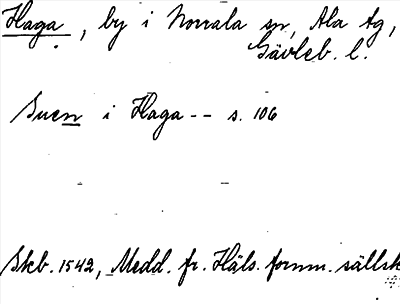 Haga, by i Norrala sn, Ala tg,
Gävleb. l.
Suen i Haga -- s. 106
Skb. 1542, Medd. fr. Häls. fornm. sällsk